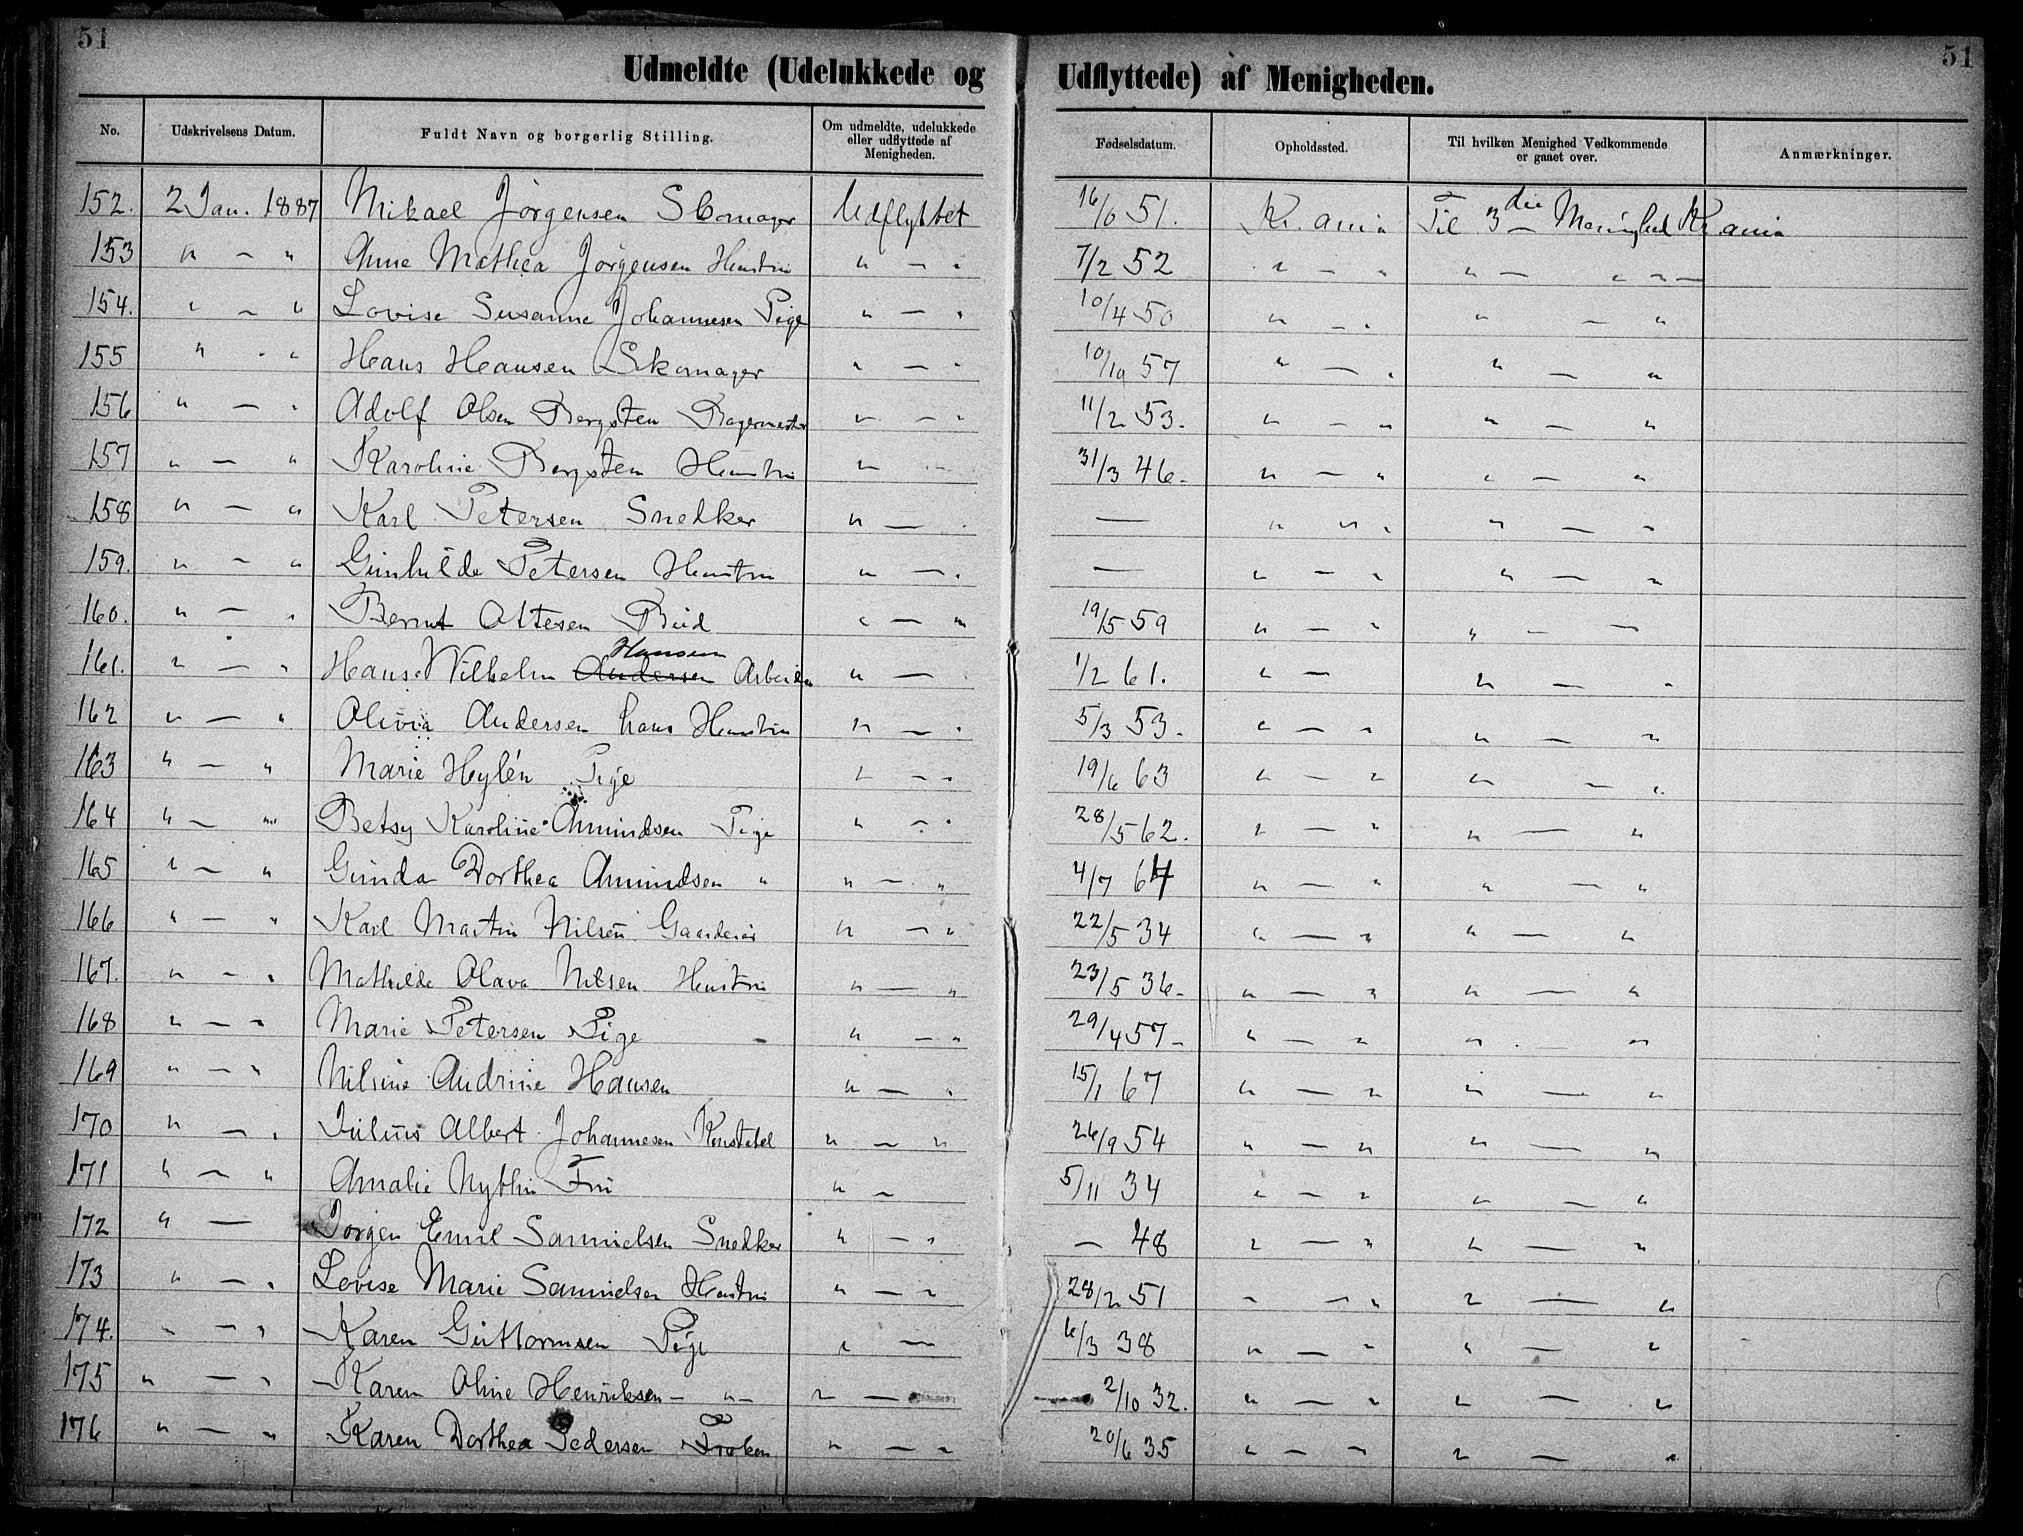 51 51
Udmeldte (Udelukkede og Udflyttede) af Menigheden.
No. Udskrivelsens Datum. Fuldt Navn og borgerlig Stilling. Om udmeldte, udelukkede eller udflyttede af Menigheden. Fødselsdatum. Opholdssted. Til hvilken Menighed Vedkommende er gaaet over. Anmærkninger.
152. 2 Jan. 1887 Mikael Jörgensen Skomager Udflyttet 16/6 51. Kr.ania Til 3die Menighed Kr.ania
153 " — " Anne Mathea Jörgensen Hustru " — " 7/2 52 " — " " — " — "
154. " — " Lovise Susanne Johannesen Pige " — " 10/4 50 " — " " — "
155 " — " Hans Hansen Skomager " — " 10/10 57 " — " " — "
156 " — " Adolf Olsen Bergsten Bagermester " — " 11/2 53. " — " " — "
157 " — " Karoline Bergsten Hustru " — " 31/3 46. " — " " — "
158 " — " Karl Petersen Snedker " — " — " " " " — "
159. " — " Gunhilde Petersen Hustru " — " — " — " " — "
160. " — " Bernt Ottesen Bud " — " 19/5 59 " — " " — "
161. " — " Hans Vilhelm Andersen Hansen Arbeider " — 1/2 61. " — " — "
162 " — " Olivia Andersen hans Hustru " — " 5/3 53. " — " " — "
163 " — " Marie Heylén Pige " — " 19/6 63 " — " " — "
164 " — " Betsy Karoline Amundsen Pige " — " 28/5 62. " — " " — "
165 " — " Gunda Dorthea Amundsen " " — " 4/7 64 " — " " — "
166 " — " Karl Martin Nilsen Gaardeier " — " 22/5 34 " — " " — "
167. " — " Mathilde Olava Nilsen Hustru " — " 23/5 36. " — " " — "
168 " — " Marie Petersen Pige " — " 29/4 57. " — " " "
169 " — " Nilsine Andrine Hansen " — " 15/1 67 " — " " — "
170 " — " Julius Albert Johannesen Konstabel " — " 26/9 54 " — " " — "
171 " — " Amalie Fru " — 5/11 34 " — " " — "
172 " — Jorgen Emil Samuelsen Snedker " — " — 48 " — " " — "
173 " — " Lovise Marie Samuelsen Hustru " — " 28/2 51 " — " " — "
174. " — " Karen Guttormsen Pige " — 6/3 38 " — " " — "
175 " — " Karen Oline Henriksen — " — " — 2/10 32. " — " " — "
176 " — " Karen Dorthea Pedersen Froken " — " 20/6 35 " — " " — "